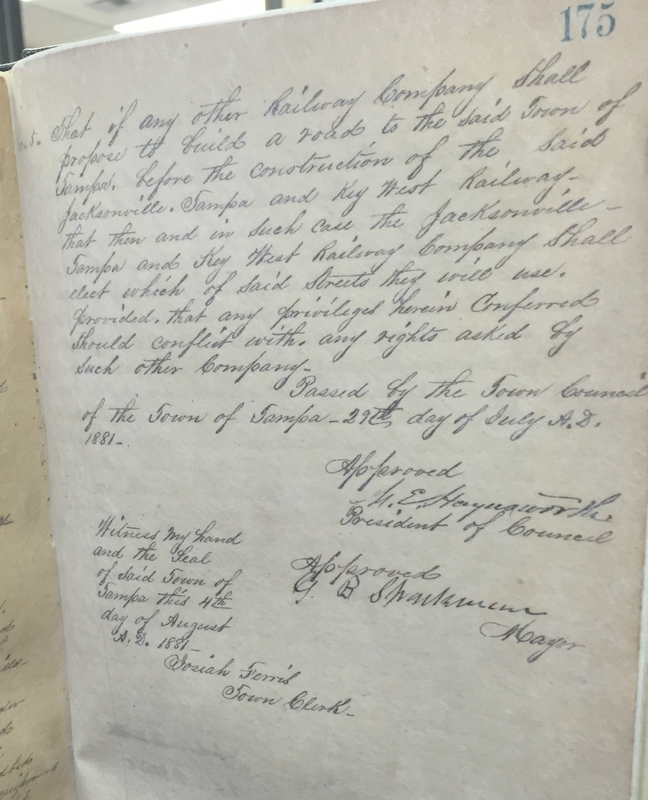 175
5. That if any other Railway Company Shall
propose to build a road to the said Town of
Tampa. before the construction of the said
Jacksonville. Tampa and Key West Railway-
that then and in such case the Jacksonville-
Tampa and Key West Railway Company Shall
elect which of said Streets they will use.
provided. that any privileges herein Conferred
should conflict with. any rights asked by
such other Company-
Passed by the Town Council
of the Town of Tampa-29th day of July A.D.
1881-
Approved
E. Haynsworth.
President of Council
Witness my hand
and the Seal
of Said Town of
Tampa this 4th
day of August
A.D. 1881-
Josiah Ferris
Town Clerk-
Approved
G B Sparkman
Mayor